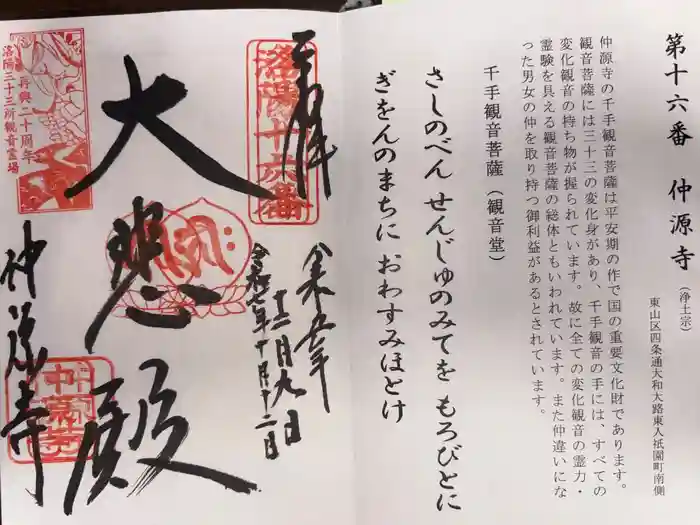 第十六番 仲源寺(浄土宗)
東山区四条通大和大路東入祇園町南側
仲源寺の千手観音菩薩は平安期の作で国の重要文化財であります。
観音菩薩には三十三の変化身があり、千手観音の手には、すべての
変化観音の持ち物が握られています。故に全ての変化観音の霊力・
霊験を具える観音菩薩の総体ともいわれています。また仲違いにな
った男女の仲を取り持つ御利益があるとされています。
千手観音菩薩(観音堂)
さしのべん せんじゅのみてを もろびとに
ぎをんのまちに おわすみほとけ
奉拝
洛陽十六番
令和七年十月十二日
大悲殿
仲源寺
仲源寺
再興二十周年
洛陽三十三所観音霊場